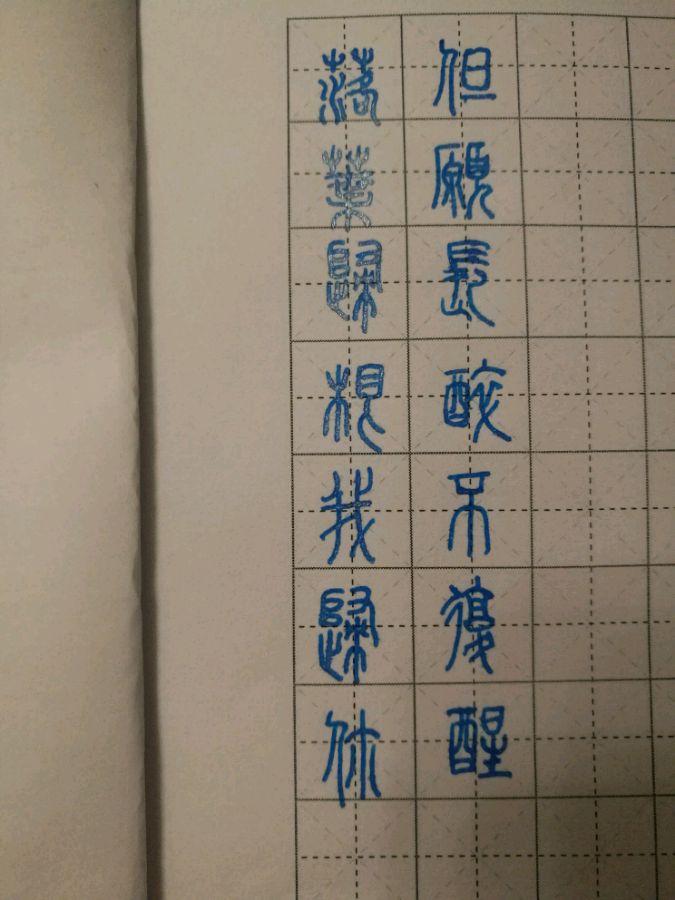 落葉歸根我歸你
但願長醉不復醒